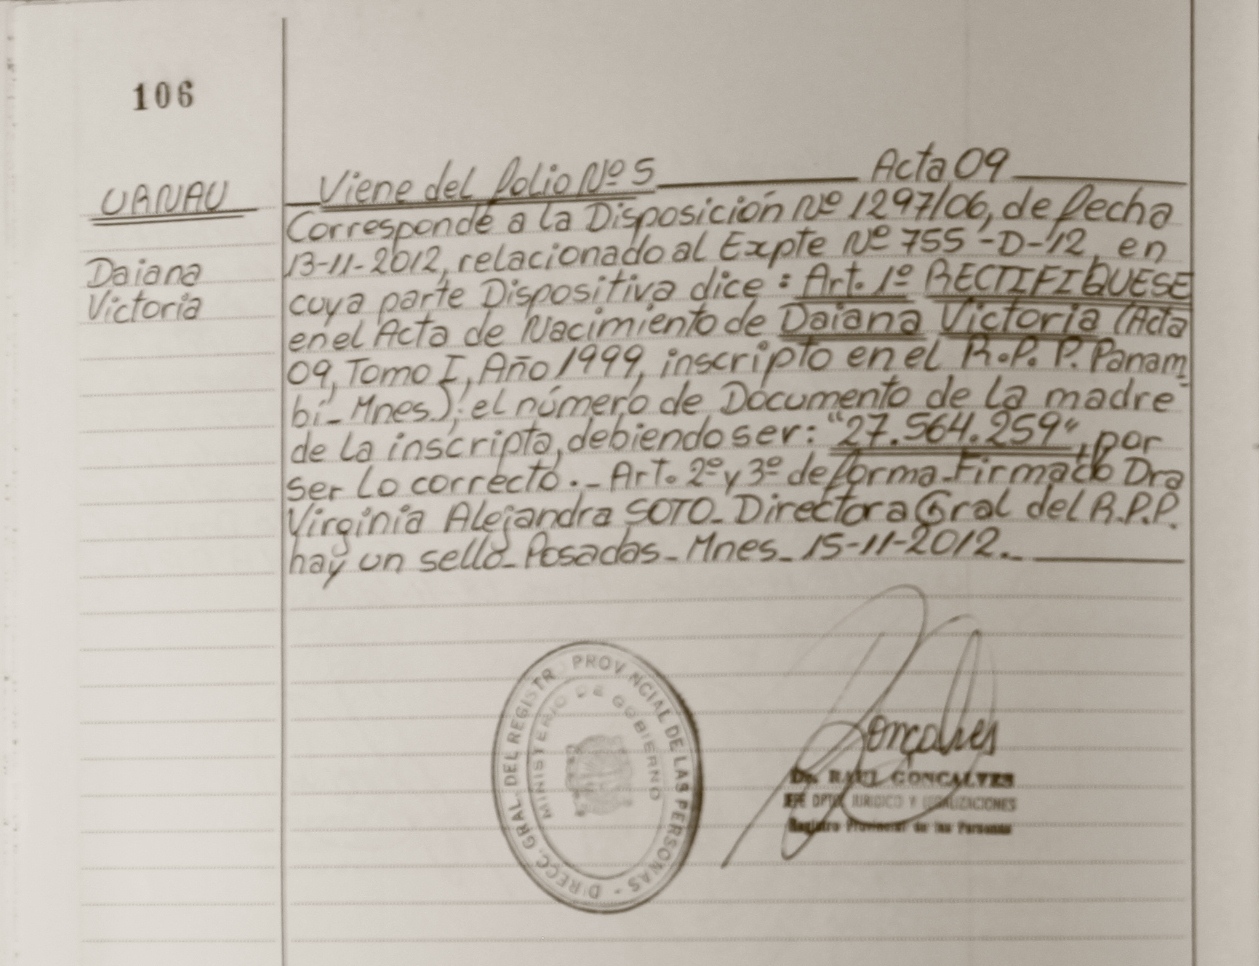 106
URNAU
Daiana
Victoria
Viene del folio Nº 5 Acta 09
Corresponde a la Disposición Nº 1297/06, de fecha
13-11-2012, relacionado al Expte Nº 755-D-12, en
cuya parte Dispositiva dice: Art. 1º RECTIFIQUESE
en el Acta de Nacimiento de Daiana Victoria (Acta
09, Tomo I, Año 1999, inscripto en el R.P.P. Panam
bí- Mnes.); el número de Documento de la madre
de la inscripta, debiendo ser: "27.564.259", por
ser lo correcto.- Art. 2º y 3º de forma- Firmado Dra
Virginia Alejandra SOTO- Directora Gral del R.P.P.
hay un sello- Posadas- Mnes- 15-11-2012.-
DIRECC. GRAL. DEL REGISTR. PROVINCIAL DE LAS PERSONAS -
MINISTERIO DE GOBIERNO
Gonçalves
Dr. RAUL GONCALVES
JEFE DPTO. JURIDICO Y LEGALIZACIONES
Registro Provincial de las Personas